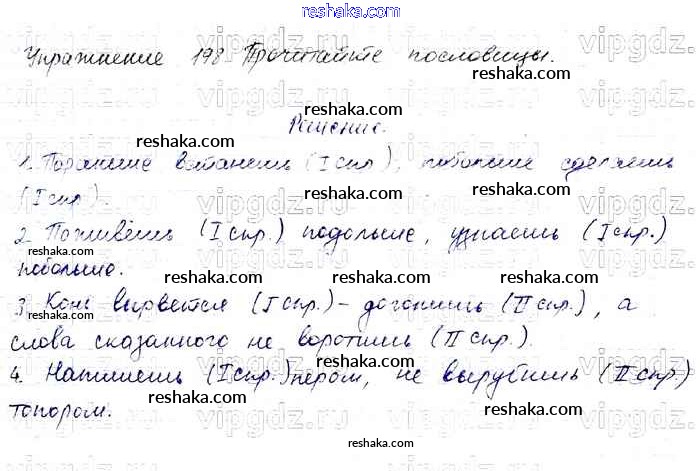 reshaka.com
Упражнение 198 Прочитайте пословицы.
reshaka.com
reshaka.com
Решение.
reshaka.com
1. Пораньше встанешь (I спр.), побольше сделаешь
(I спр.).
reshaka.com
2. Поживёшь (I спр.) подольше, узнаешь (I спр.)
reshaka.com
побольше.
reshaka.com
reshaka.com
3. Конь вырвется (I спр.) – догонишь (II спр.), а
слова сказанного не воротишь (II спр.).
reshaka.com
4. Напишешь (I спр.) пером, не вырубишь (II спр.)
reshaka.com
топором.
reshaka.com
reshaka.com